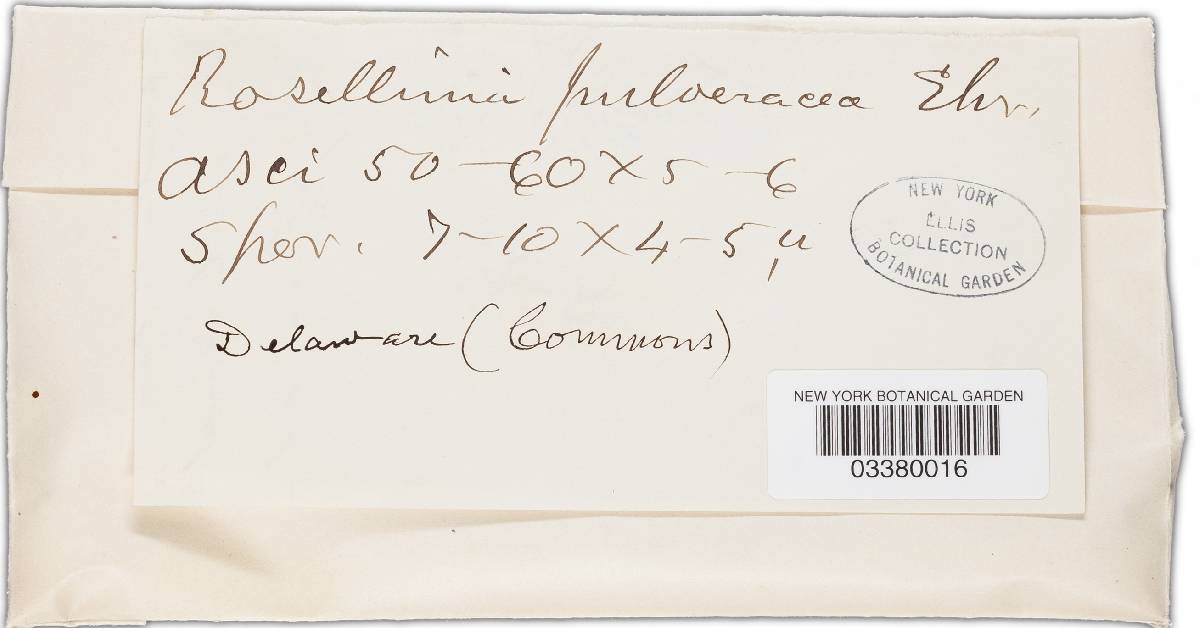 Rosellinia pulveracea Ehr.
asci 50-60 × 5-6
Spor. 7-10 × 4-5 µ
Delaware (Commons)
NEW YORK
ELLIS
COLLECTION
BOTANICAL GARDEN
NEW YORK BOTANICAL GARDEN
03380016